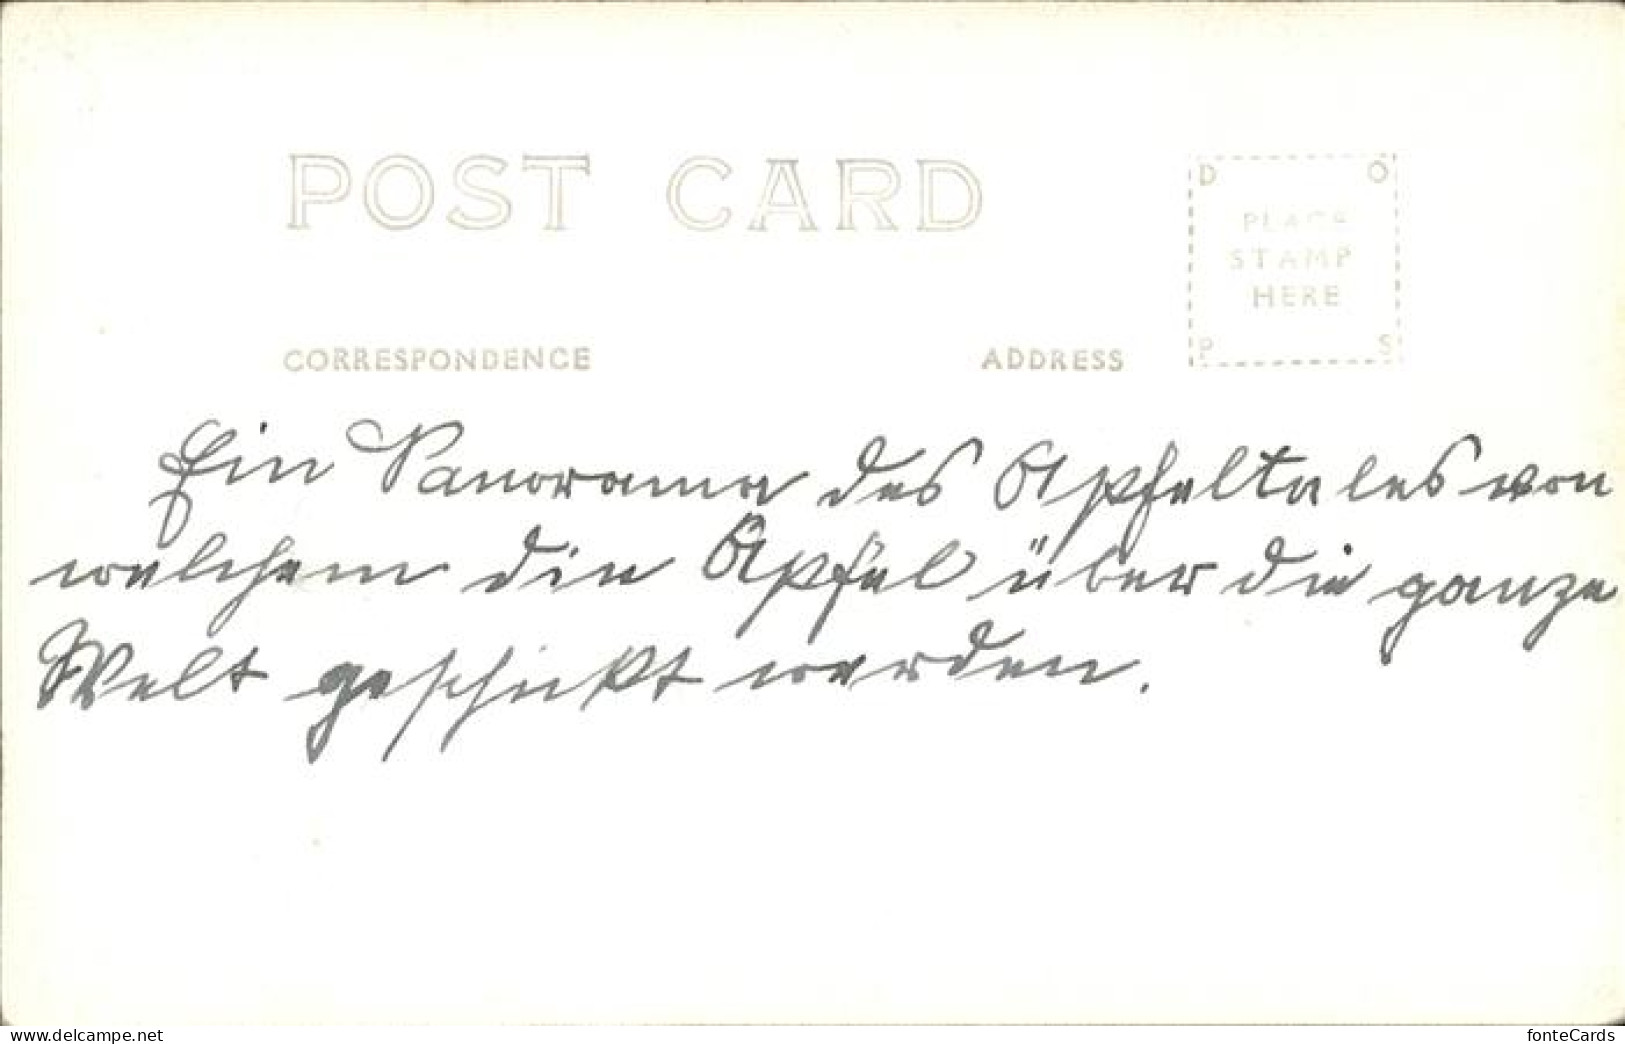 POST CARD
D O
PLACE
STAMP
HERE
P S
CORRESPONDENCE
ADDRESS
Ein Panorama des Apfeltales von
welchem die Äpfel über die ganze
Welt geschickt werden.
www.delcampe.net
fonteCards